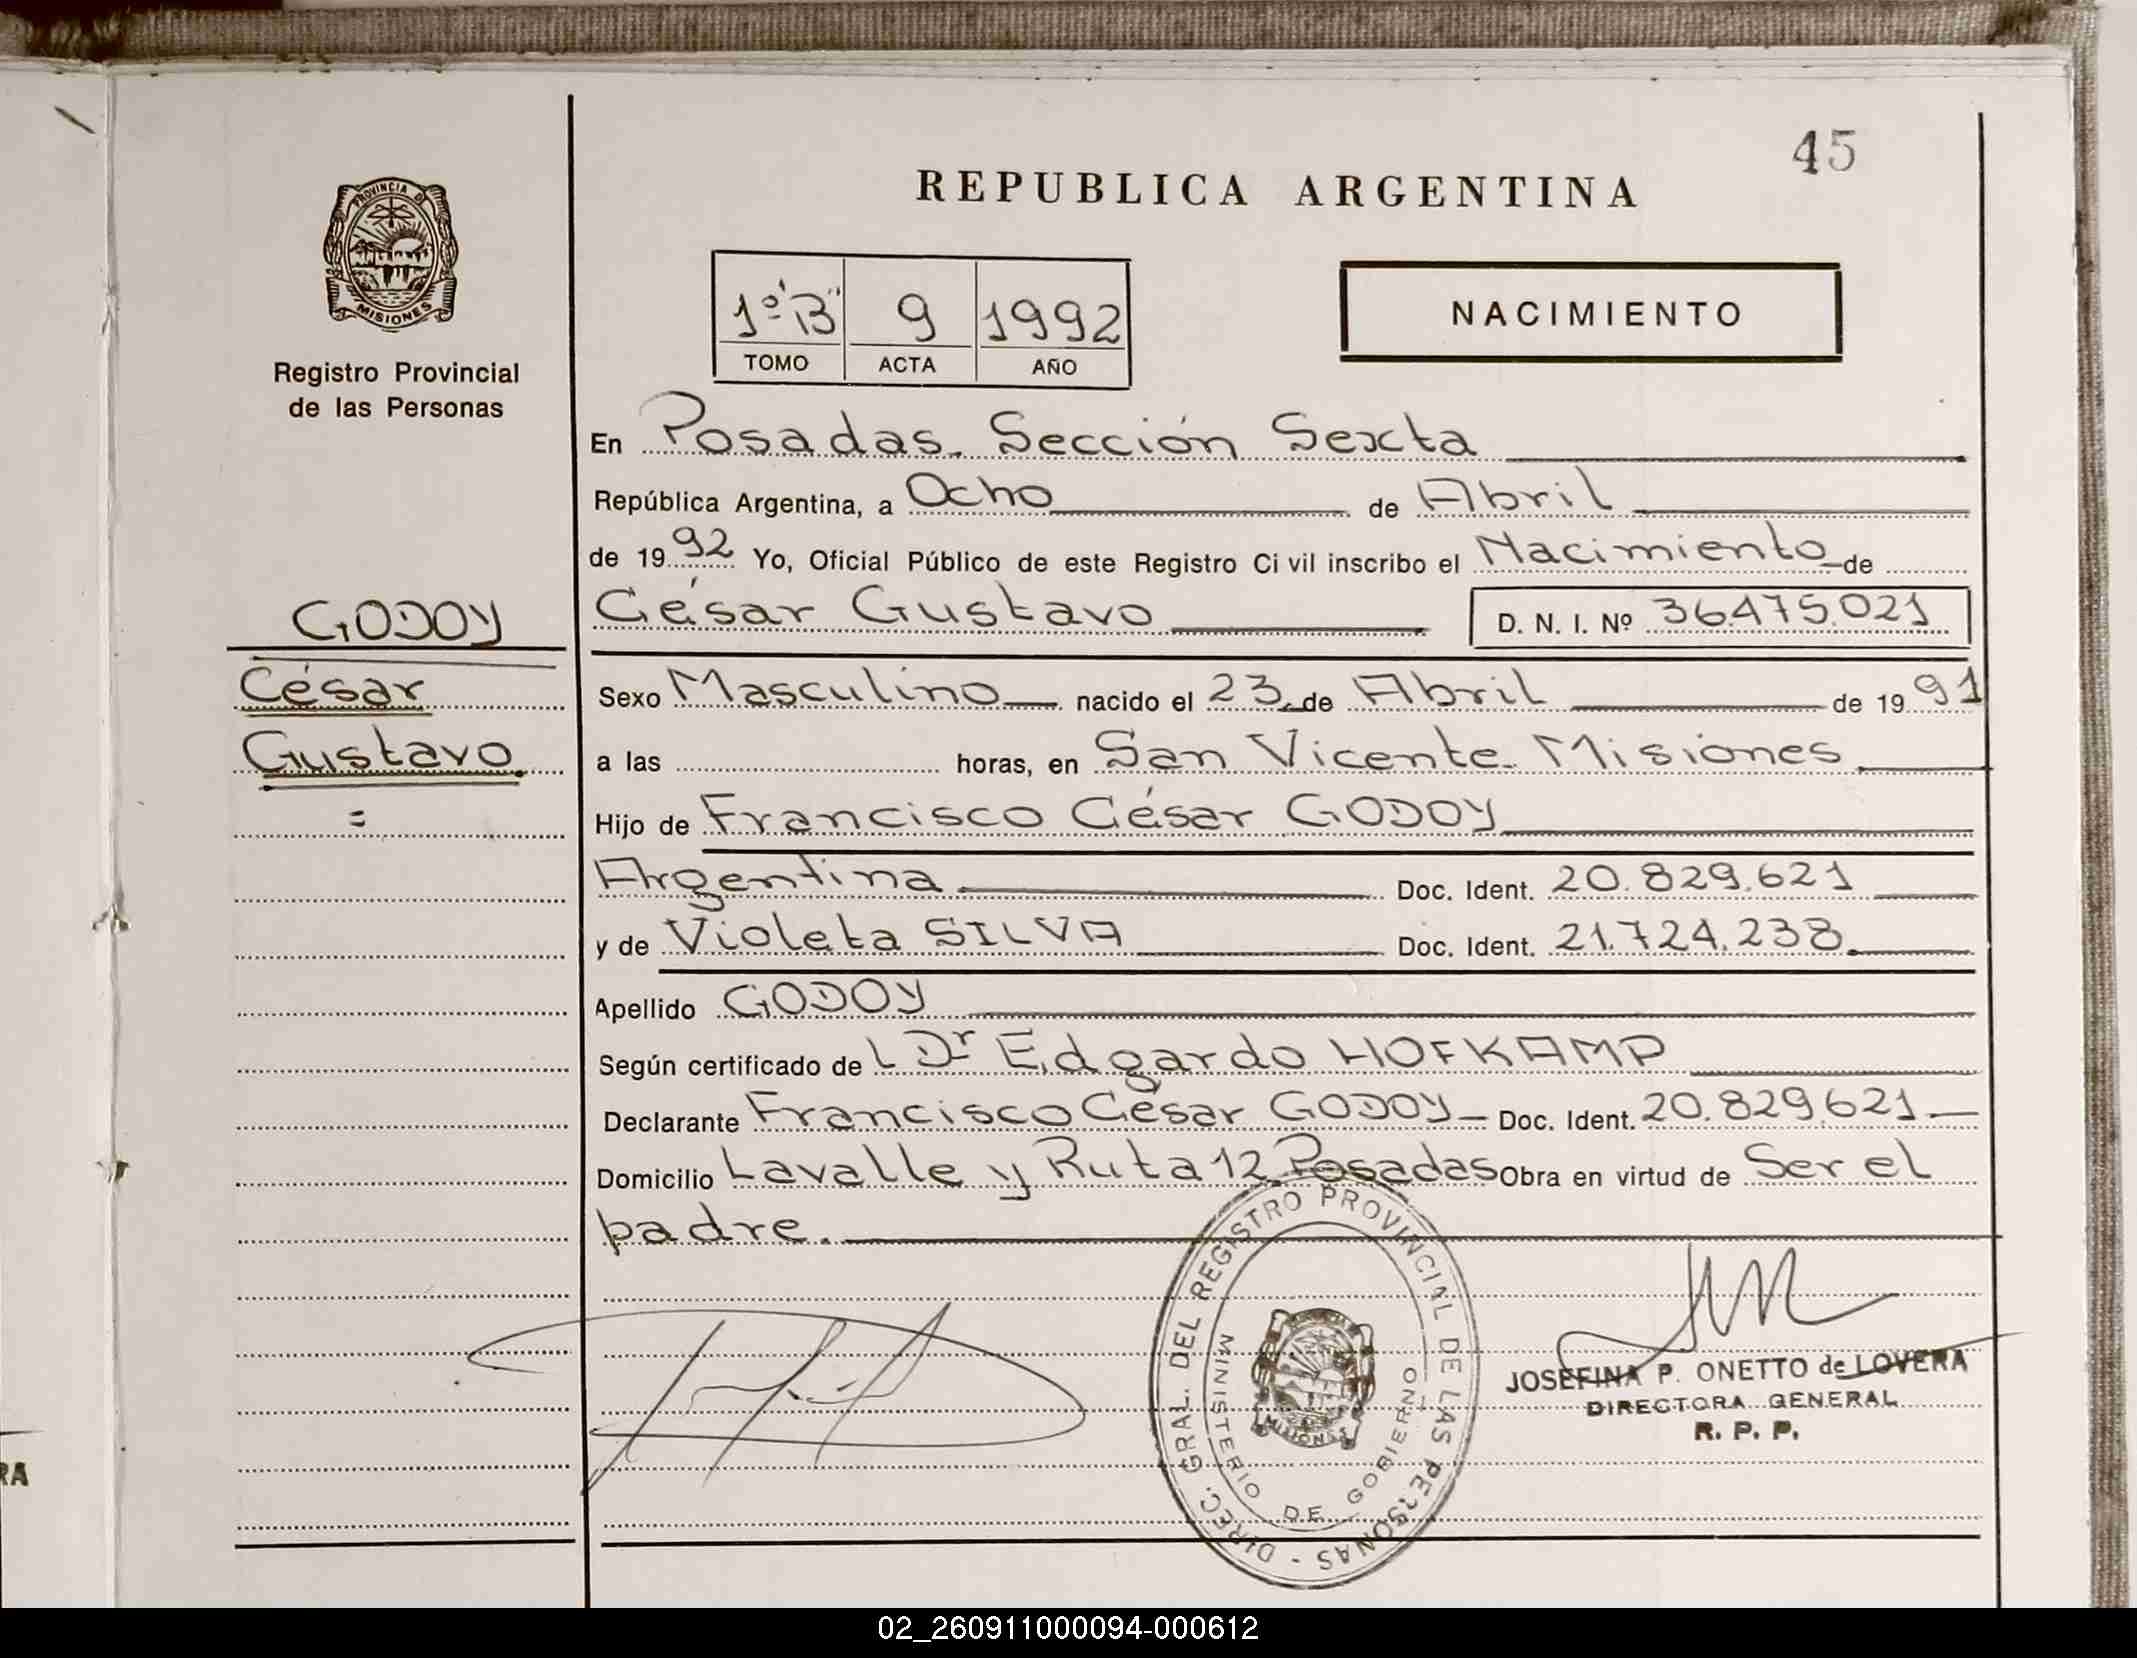 45
REPUBLICA ARGENTINA
PROVINCIA DE
MISIONES
Registro Provincial
de las Personas
1º "B" 9 1992
TOMO ACTA AÑO
NACIMIENTO
En Posadas. Sección Sexta
República Argentina, a Ocho de Abril
de 1992 Yo, Oficial Público de este Registro Civil inscribo el Nacimiento de
César Gustavo D. N. I. Nº 36.475.021
GODOY
César
Gustavo
=
Sexo Masculino nacido el 23 de Abril de 1991
a las horas, en San Vicente. Misiones
Hijo de Francisco César GODOY
Argentina Doc. Ident. 20.829.621
y de Violeta SILVA Doc. Ident. 21.724.238.
Apellido GODOY
Según certificado de L Dr Edgardo HOFKAMP
Declarante Francisco César GODOY Doc. Ident. 20.829.621
Domicilio Lavalle y Ruta 12 Posadas Obra en virtud de Ser el
padre.
DIREC. GRAL. DEL REGISTRO PROVINCIAL DE LAS PERSONAS -
MINISTERIO DE GOBIERNO
MISIONES
JOSEFINA P. ONETTO de LOVERA
DIRECTORA GENERAL
R. P. P.
RA
02_260911000094-000612